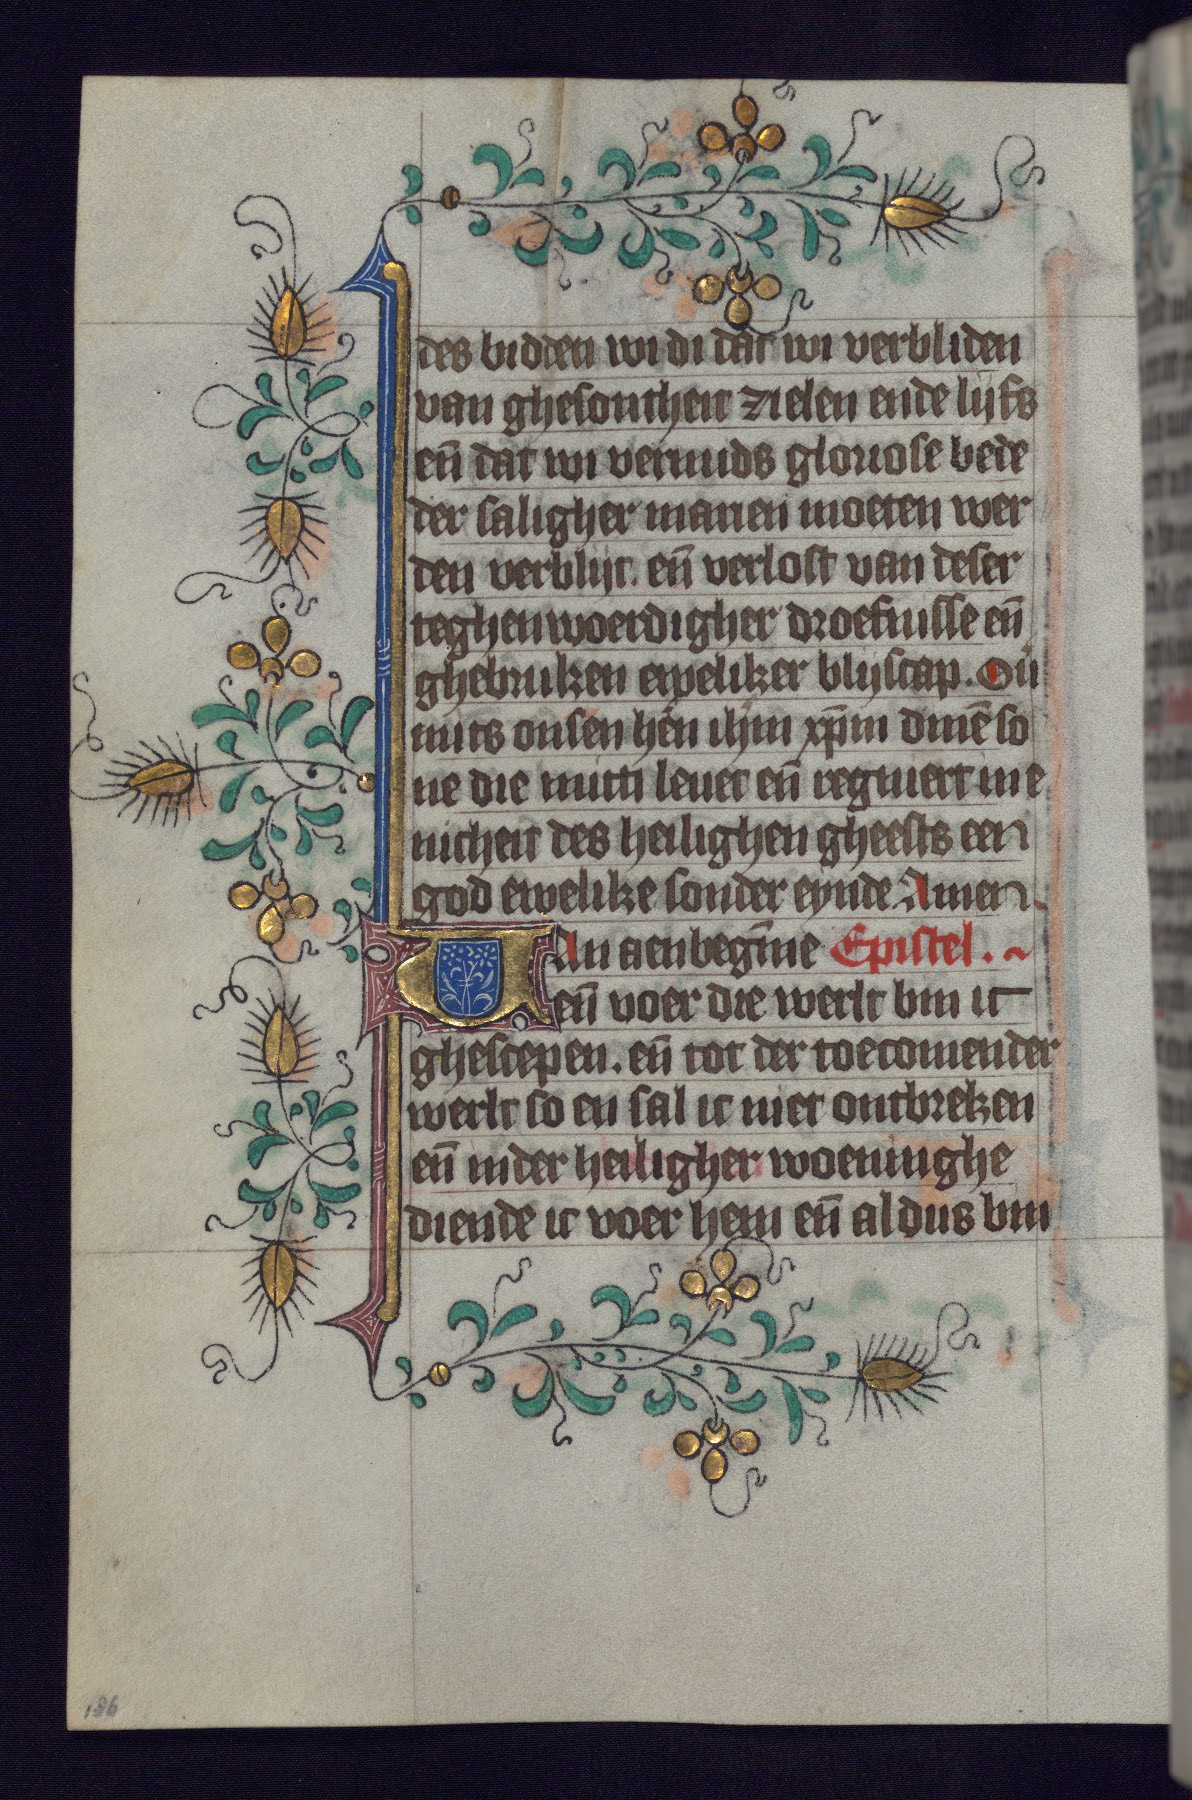 des bidden wi di dat wi verbliden
van ghesontheit zielen ende lijfs
en̄ dat wi vermids gloriose bede
der saligher marien moeten wer
den verblijt. en̄ verlost van deser
teghenwoerdigher droefnisse en̄
ghebruken eweliker blijscap. Ou̅
mits onsen hēn ihm xp̄m dinē so
ne die mitti leuet en̄ regniert in e
nicheit des heilighen gheests een
god ewelike sonder eynde Amen.
Van aenbegīne Epistel.
en̄ voer die werlt bin ic
ghescepen. en̄ tot der toecomender
werlt so en sal ic niet ontbreken
en̄ inder heiligher woeninghe
diende ic voer hem en̄ aldus bin
186